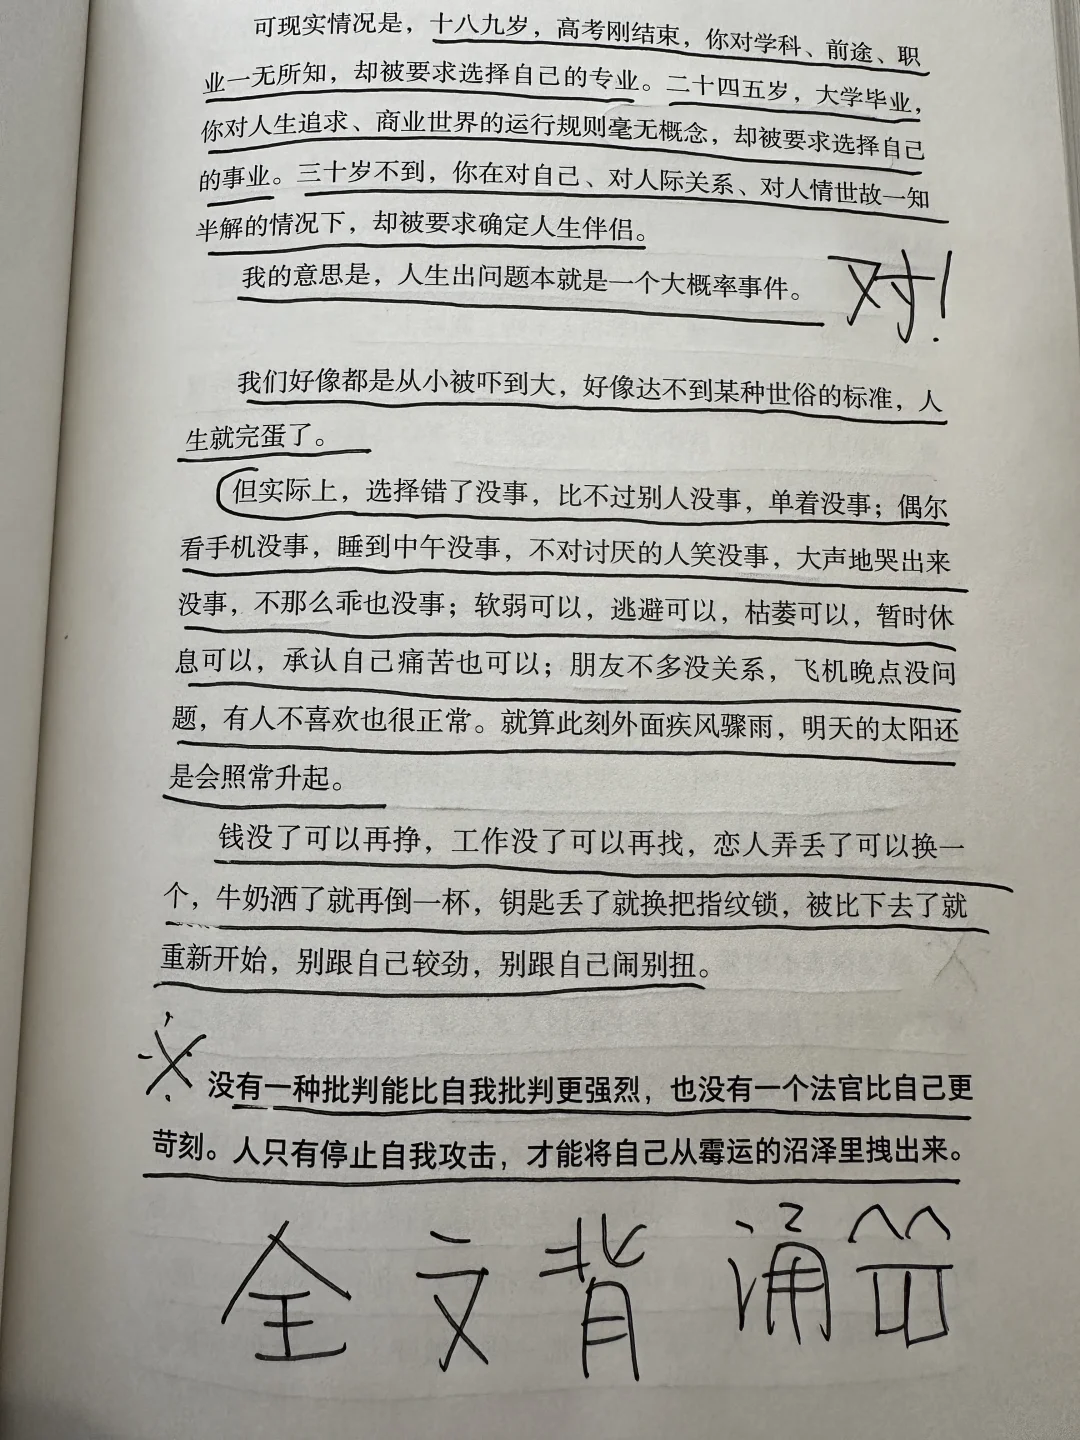 可现实情况是，十八九岁，高考刚结束，你对学科、前途、职
业一无所知，却被要求选择自己的专业。二十四五岁，大学毕业，
你对人生追求、商业世界的运行规则毫无概念，却被要求选择自己
的事业。三十岁不到，你在对自己、对人际关系、对人情世故一知
半解的情况下，却被要求确定人生伴侣。
我的意思是，人生出问题本就是一个大概率事件。
对！
我们好像都是从小被吓到大，好像达不到某种世俗的标准，人
生就完蛋了。
但实际上，选择错了没事，比不过别人没事，单着没事；偶尔
看手机没事，睡到中午没事，不对讨厌的人笑没事，大声地哭出来
没事，不那么乖也没事；软弱可以，逃避可以，枯萎可以，暂时休
息可以，承认自己痛苦也可以；朋友不多没关系，飞机晚点没问
题，有人不喜欢也很正常。就算此刻外面疾风骤雨，明天的太阳还
是会照常升起。
钱没了可以再挣，工作没了可以再找，恋人弄丢了可以换一
个，牛奶洒了就再倒一杯，钥匙丢了就换把指纹锁，被比下去了就
重新开始，别跟自己较劲，别跟自己闹别扭。
没有一种批判能比自我批判更强烈，也没有一个法官比自己更
苛刻。人只有停止自我攻击，才能将自己从霉运的沼泽里拽出来。
全文背诵